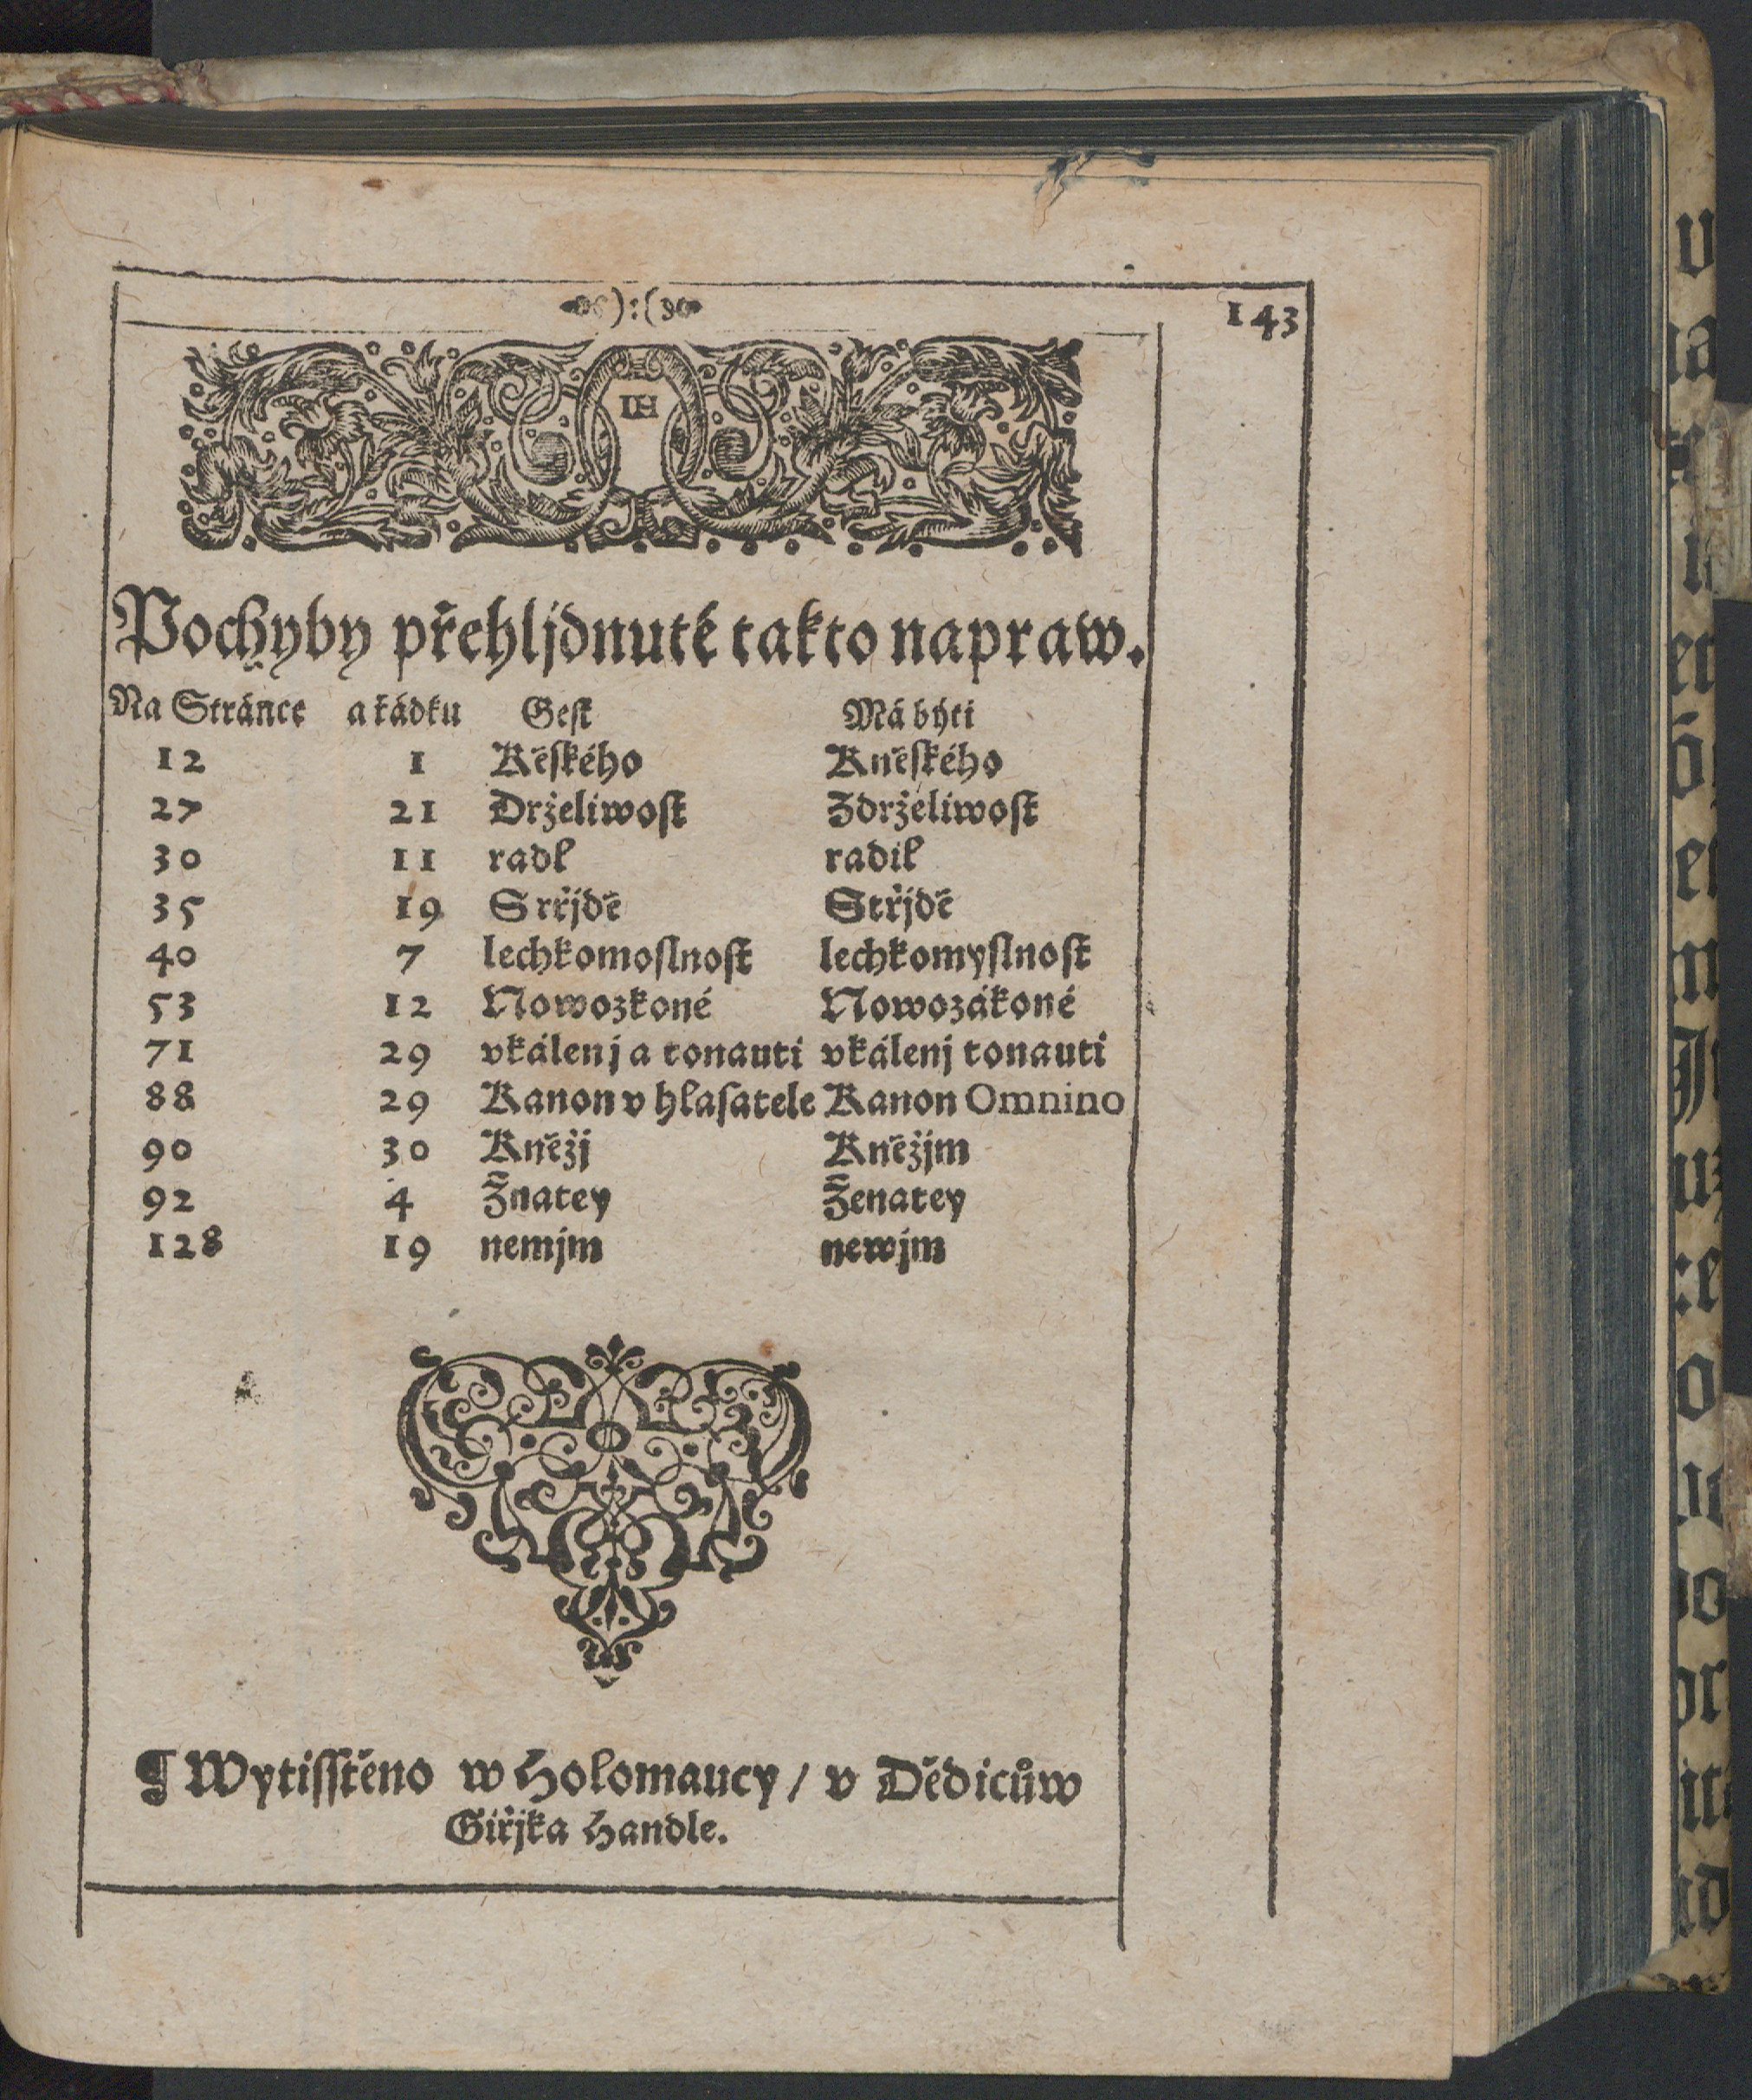 ):( 143
IH
Pochyby přehljdnuté takto napraw.
Na Stránce a řádku Gest Má býti
12 1 Kěského Kněského
27 21 Drżeliwost Zdrżeliwost
30 11 radl radil
35 19 Srřjdě Střjdě
40 7 lechkomoslnost lechkomyslnost
53 12 Nowozkoné Nowozákoné
71 29 vkálenj a tonauti vkálenj tonauti
88 29 Kanon v hlasatele Kanon Omnino
90 30 Kněżj Kněżjm
92 4 Žnatey Ženatey
128 19 nemjm newjm
¶ Wytisstěno w Holomaucy / v Dědicůw
Giřjka Handle.